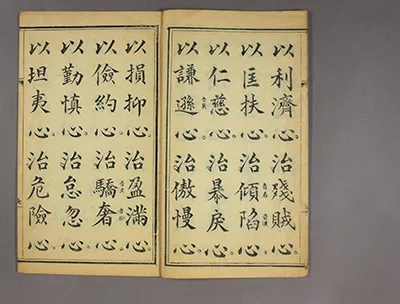 以利濟心。治殘賊心。
以匡扶心。治傾陷心。
以仁慈心。治暴戾心。
以謙遜心。治傲慢心。
以損抑心。治盈滿心。
以儉約心。治驕奢心。
以勤慎心。治怠忽心。
以坦夷心。治危險心。